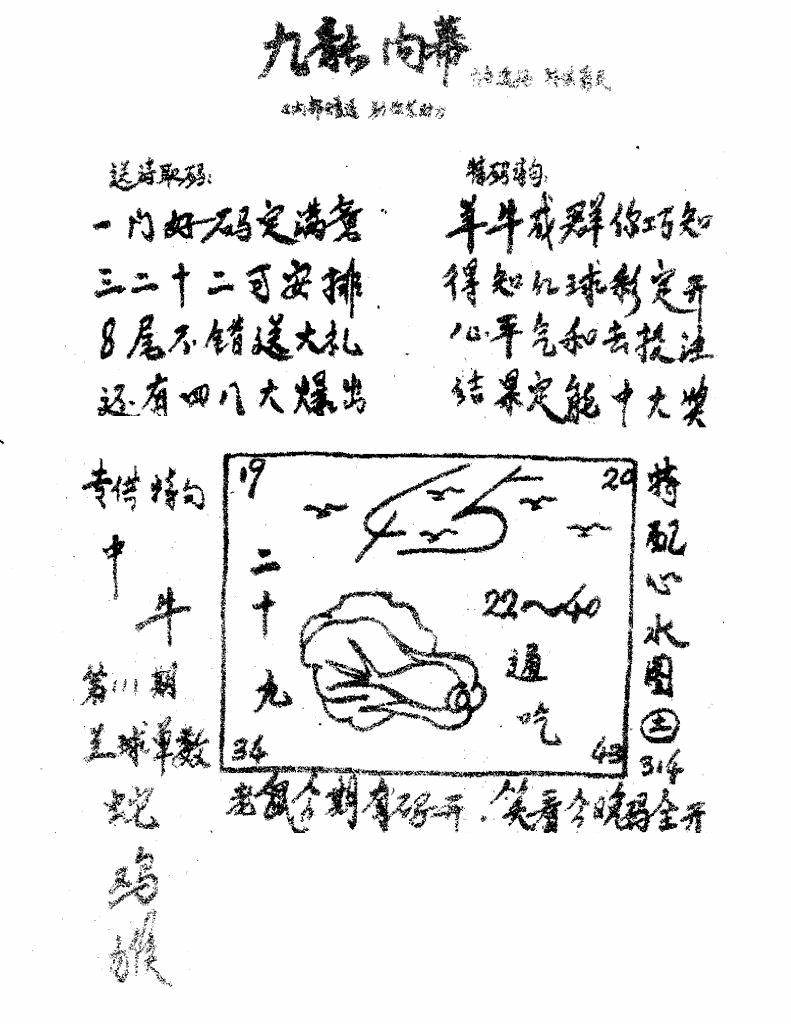 九龙内幕
送诗取码:
一门好码定满意
三二十二可安排
8尾不错送大礼
还有四八大爆出
特码诗句:
羊牛成群你巧知
得知红球彩定开
心平气和去投注
结果定能中大奖
专供特句
中
牛
第111期
兰球单数
蛇
鸡
猴
19
20
二十九
22～40
通吃
34
43
特配心水图
土
314
老鼠今期有码开.笑看今晚码全开